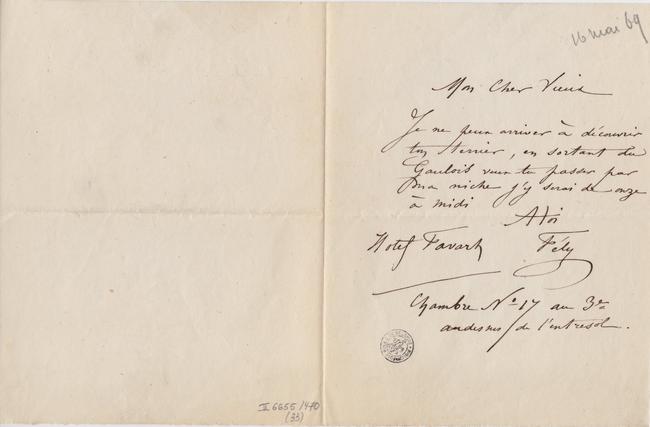 16 mai 69
Mon Cher Vieux
Je ne peux arriver à découvrir
ton terrier, en sortant du
Gaulois veux tu passer par
ma niche j'y serai de onze
à midi
A toi
Hotel Favart Fély
Chambre No 17 au 3e
au dessus de l'entresol.
II 6655/470
(33)